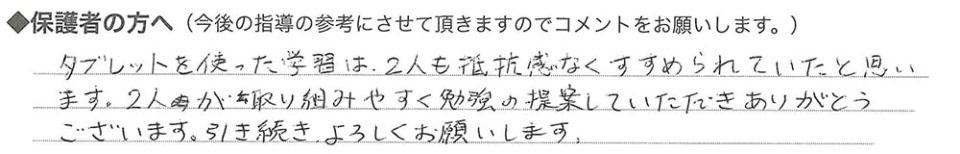 ◆保護者の方へ（今後の指導の参考にさせて頂きますのでコメントをお願いします。）
タブレットを使った学習は、2人も抵抗感なくすすめられていたと思い
ます。2人が取り組みやすく勉強の提案していただきありがとう
ございます。引き続き、よろしくお願いします。